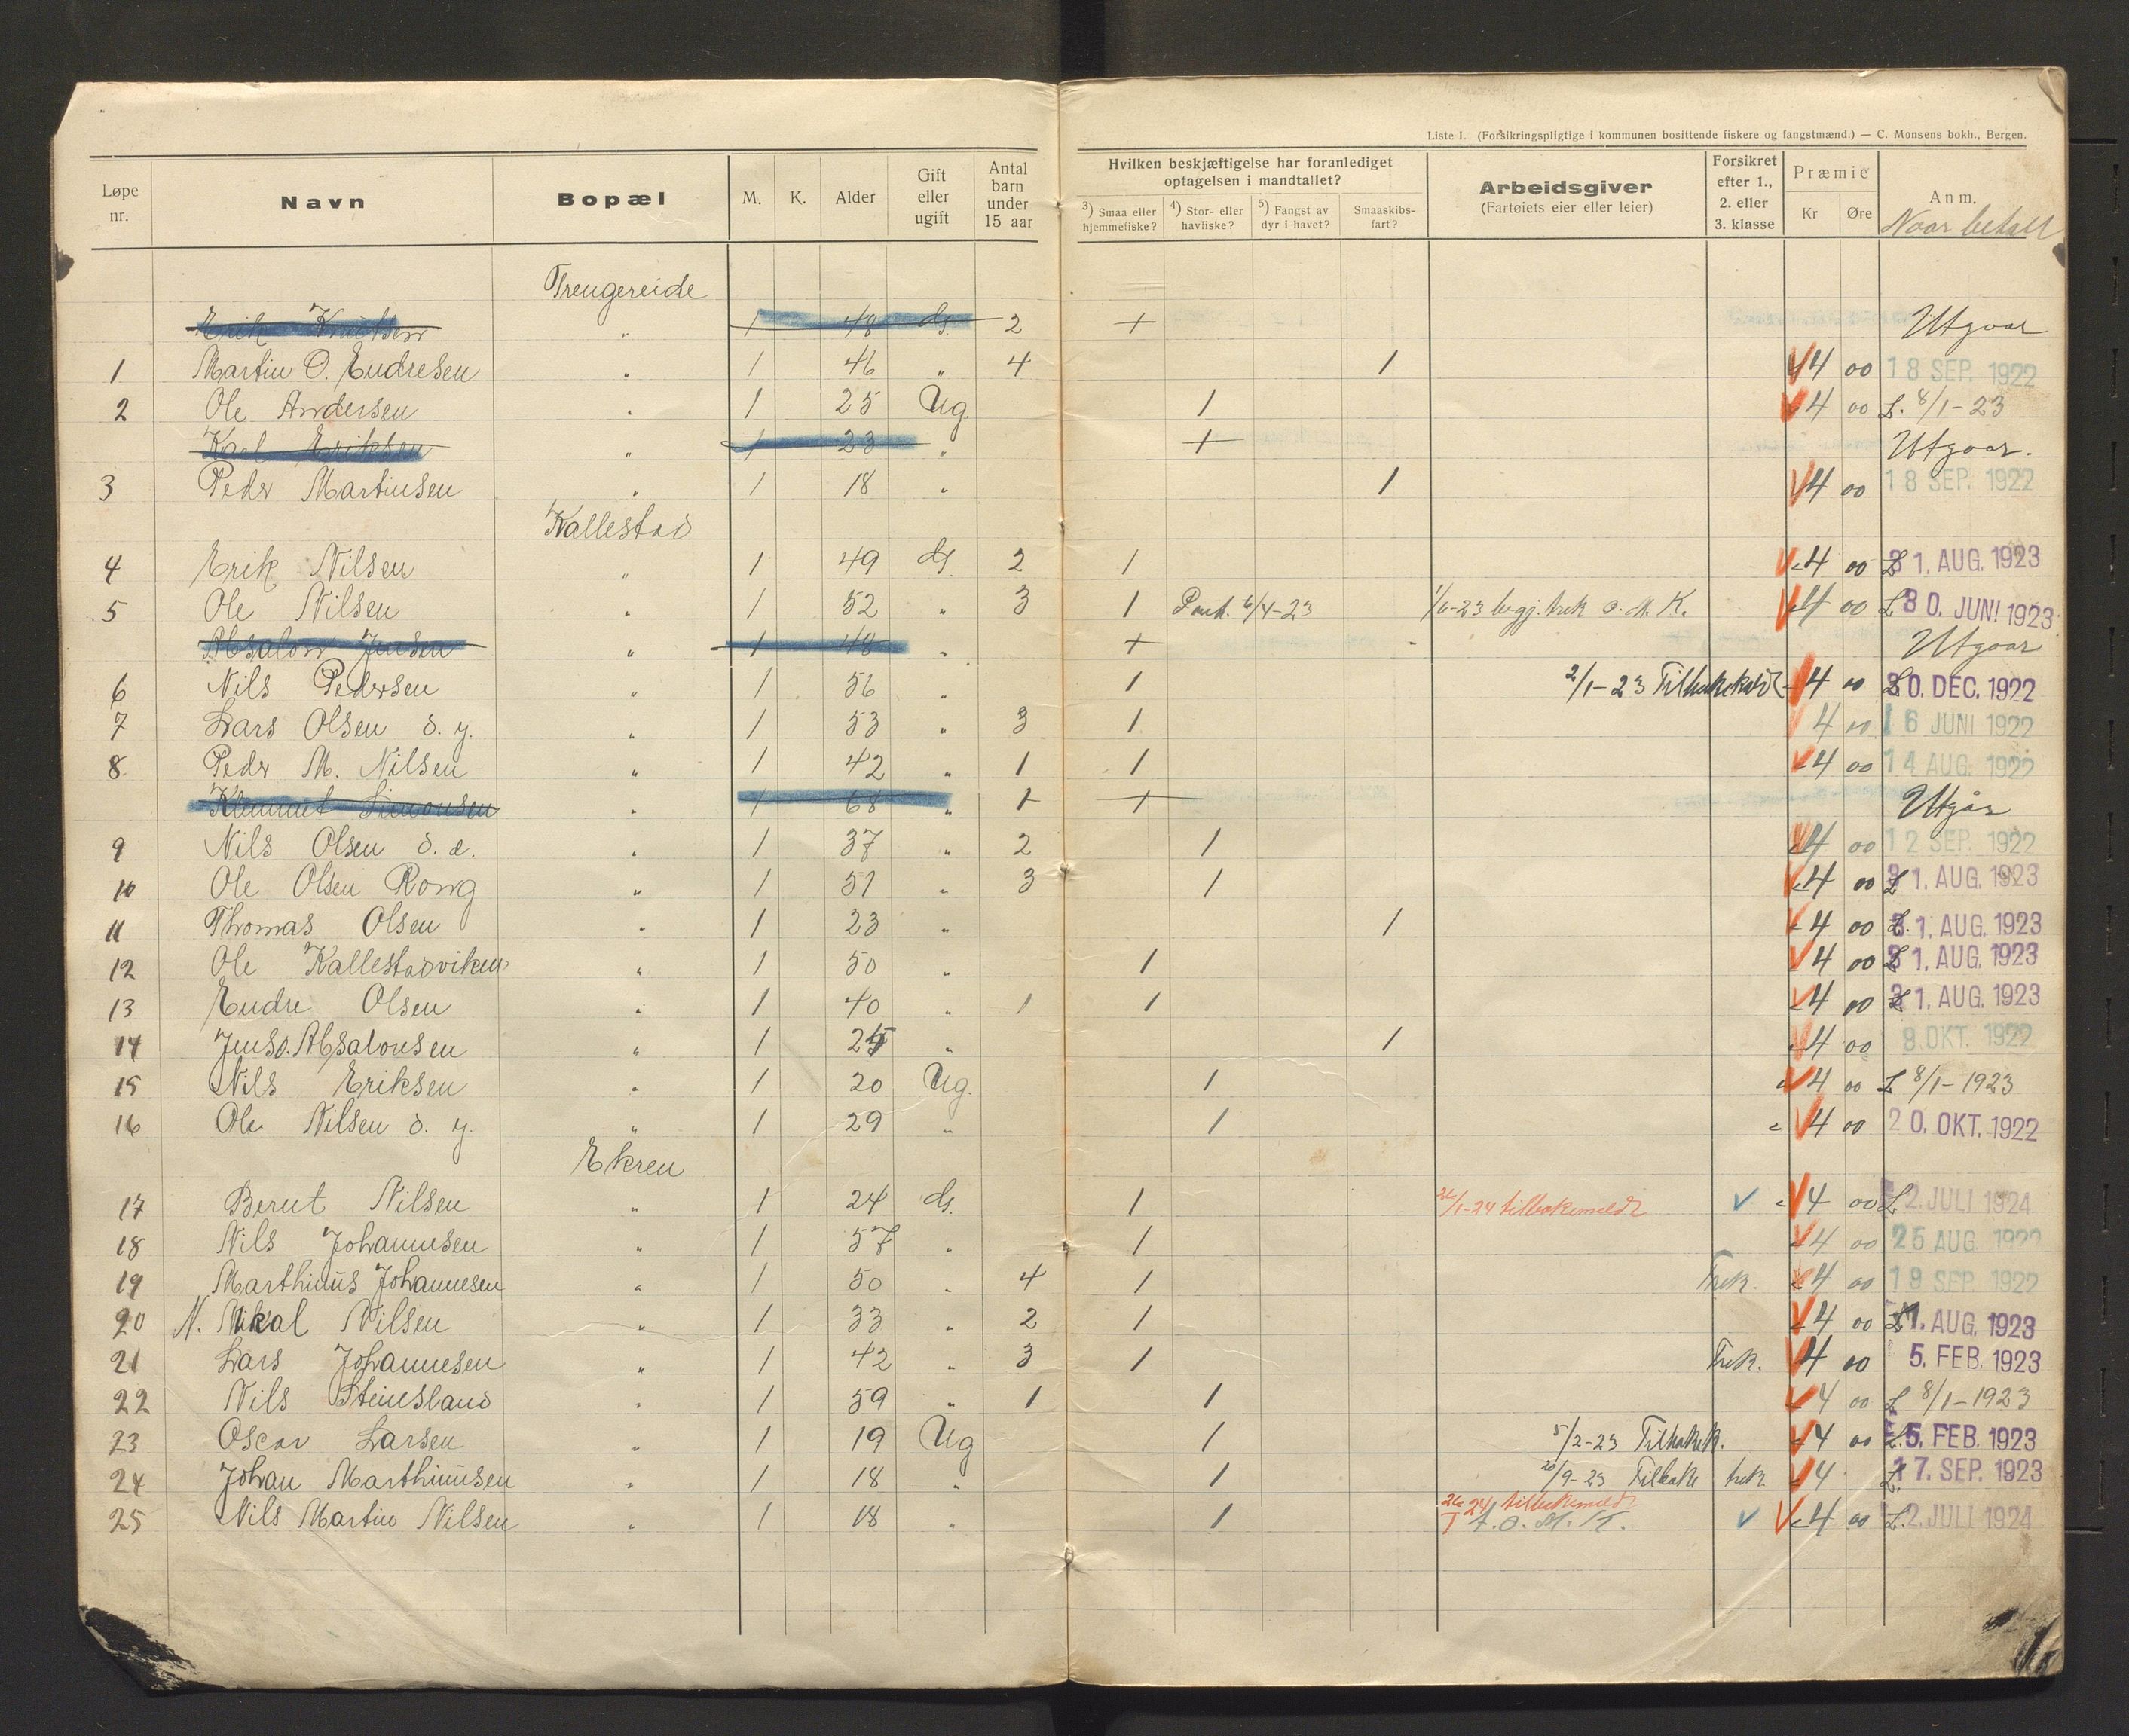 Liste I. (Forsikringspligtige i kommunen bosittende fiskere og fangstmænd.) — C. Monsens bokh., Bergen.
Løpe nr. Navn Bopæl M. K. Alder Gift eller ugift Antal barn under 15 aar Hvilken beskjæftigelse har foranlediget optagelsen i mandtallet? 3) Smaa eller hjemmefiske? 4) Stor- eller havfiske? 5) Fangst av dyr i havet? Smaaskibsfart? Arbeidsgiver (Fartøiets eier eller leier) Forsikret efter 1., 2. eller 3. klasse Præmie Kr Øre Anm.
Naar betalt
Trengereide
Erik Knutsen " 1 48 G. 2 1 Utgaar
1 Martin O. Endresen " 1 46 " 4 1 4 00 18 SEP. 1922
2 Ole Andersen " 1 25 Ug. 1 4 00 L. 8/1-23
Karl Eriksen " 1 23 " 1 Utgaar.
3 Peder Martinsen " 1 18 " 1 4 00 18 SEP. 1922
Kallestad
4 Erik Nilsen " 1 49 G. 2 1 4 00 L 31. AUG. 1923
5 Ole Nilsen " 1 52 " 3 1 6/4-23 1/6-23 begj. trek o. M. K. 4 00 L. 30. JUNI 1923
Absalon Jensen " 1 48 " 1 Utgaar
6 Nils Pedersen " 1 56 " 1 2/1-23 4 00 L 30. DEC. 1922
7 Lars Olsen d. y. " 1 53 " 3 1 4 00 16 JUNI 1922
8 Peder M. Nilsen " 1 42 " 1 1 4 00 14 AUG. 1922
Klemmet Simonsen " 1 68 " 1 1 Utgår
9 Nils Olsen d. e. " 1 37 " 2 1 4 00 12 SEP. 1922
10 Ole Olsen Rong " 1 51 " 3 1 4 00 L 31. AUG. 1923
11 Thomas Olsen " 1 23 " 1 4 00 L. 31. AUG. 1923
12 Ole Kallestadviken " 1 50 " 1 4 00 L 31. AUG. 1923
13 Endre Olsen " 1 40 " 1 1 4 00 L 31. AUG. 1923
14 Jens O. Absalonsen " 1 25 " 1 4 00 9. OKT. 1922
15 Nils Eriksen " 1 20 Ug. 1 4 00 L 8/1-1923
16 Ole Nilsen d. y. " 1 29 " 1 4 00 20. OKT. 1922
Ekren
17 Bernt Nilsen " 1 24 G. 1 26/1-24 tilbakemeldt 4 00 L. 2. JULI 1924
18 Nils Johannesen " 1 57 " 1 4 00 25 AUG 1922
19 Marthinus Johannesen " 1 50 4 1 Trek. 4 00 18 SEP. 1922
20 N. Mikal Nilsen " 1 33 " 2 1 4 00 L 31. AUG. 1923
21 Lars Johannesen " 1 42 " 3 1 Trek. 4 00 5. FEB. 1923
22 Nils Steinsland " 1 59 " 1 1 4 00 L 8/1-1923
23 Oscar Larsen " 1 19 Ug 1 5/2-23 Tilbakek. 4 00 L. 5. FEB. 1923
24 Johan Marthinusen " 1 18 " 1 20/9-23 Tilbake trek 4 L. 17. SEP. 1923
25 Nils Martin Nilsen " 1 18 " 1 26/1 24 tilbakemeldt 4 00 L. 2. JULI 1924